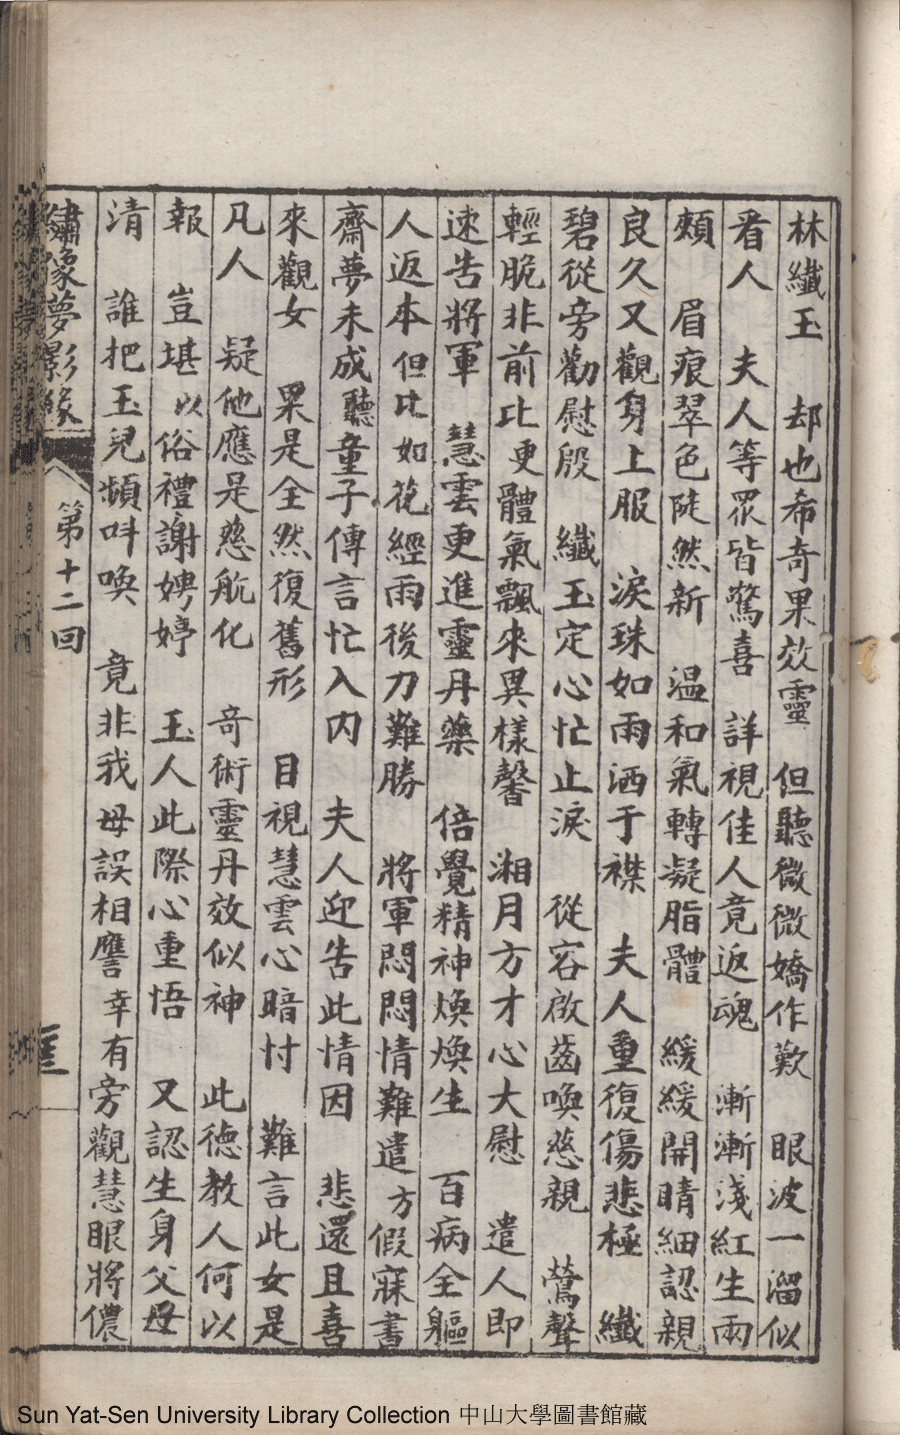 林纖玉　却也希奇果效靈　但聽微微嬌作歎　眼波一溜似
看人　夫人等眾皆驚喜　詳視佳人竟返魂　漸漸淺紅生兩
頰　眉痕翠色陡然新　温和氣轉凝脂體　緩緩開睛細認親
良久又觀身上服　淚珠如雨洒于襟　夫人重復傷悲極　纖
碧從旁勸慰殷　纖玉定心忙止淚　從容啟齒喚慈親　鶯聲
輕脆非前比更體氣飄來異樣馨　湘月方才心大慰　遣人即
速告將軍　慧雲更進靈丹藥　倍覺精神煥煥生　百病全軀
人返本但比如花經雨後刀難勝　將軍悶悶情難遣方假寐書
齋夢未成聽童子傳言忙入内　夫人迎告此情因　悲還且喜
來觀女　果是全然復舊形　目視慧雲心暗忖　難言此女是
凡人　疑他應是慈航化　奇術靈丹效似神　此德教人何以
報　豈堪以俗禮謝娉婷　玉人此際心重悟　又認生身父母
清　誰把玉兒頻呌喚　竟非我母誤相譍幸有旁觀慧眼將儂
繡像夢影緣　第十二回
Sun Yat-Sen University Library Collection 中山大學圖書館藏